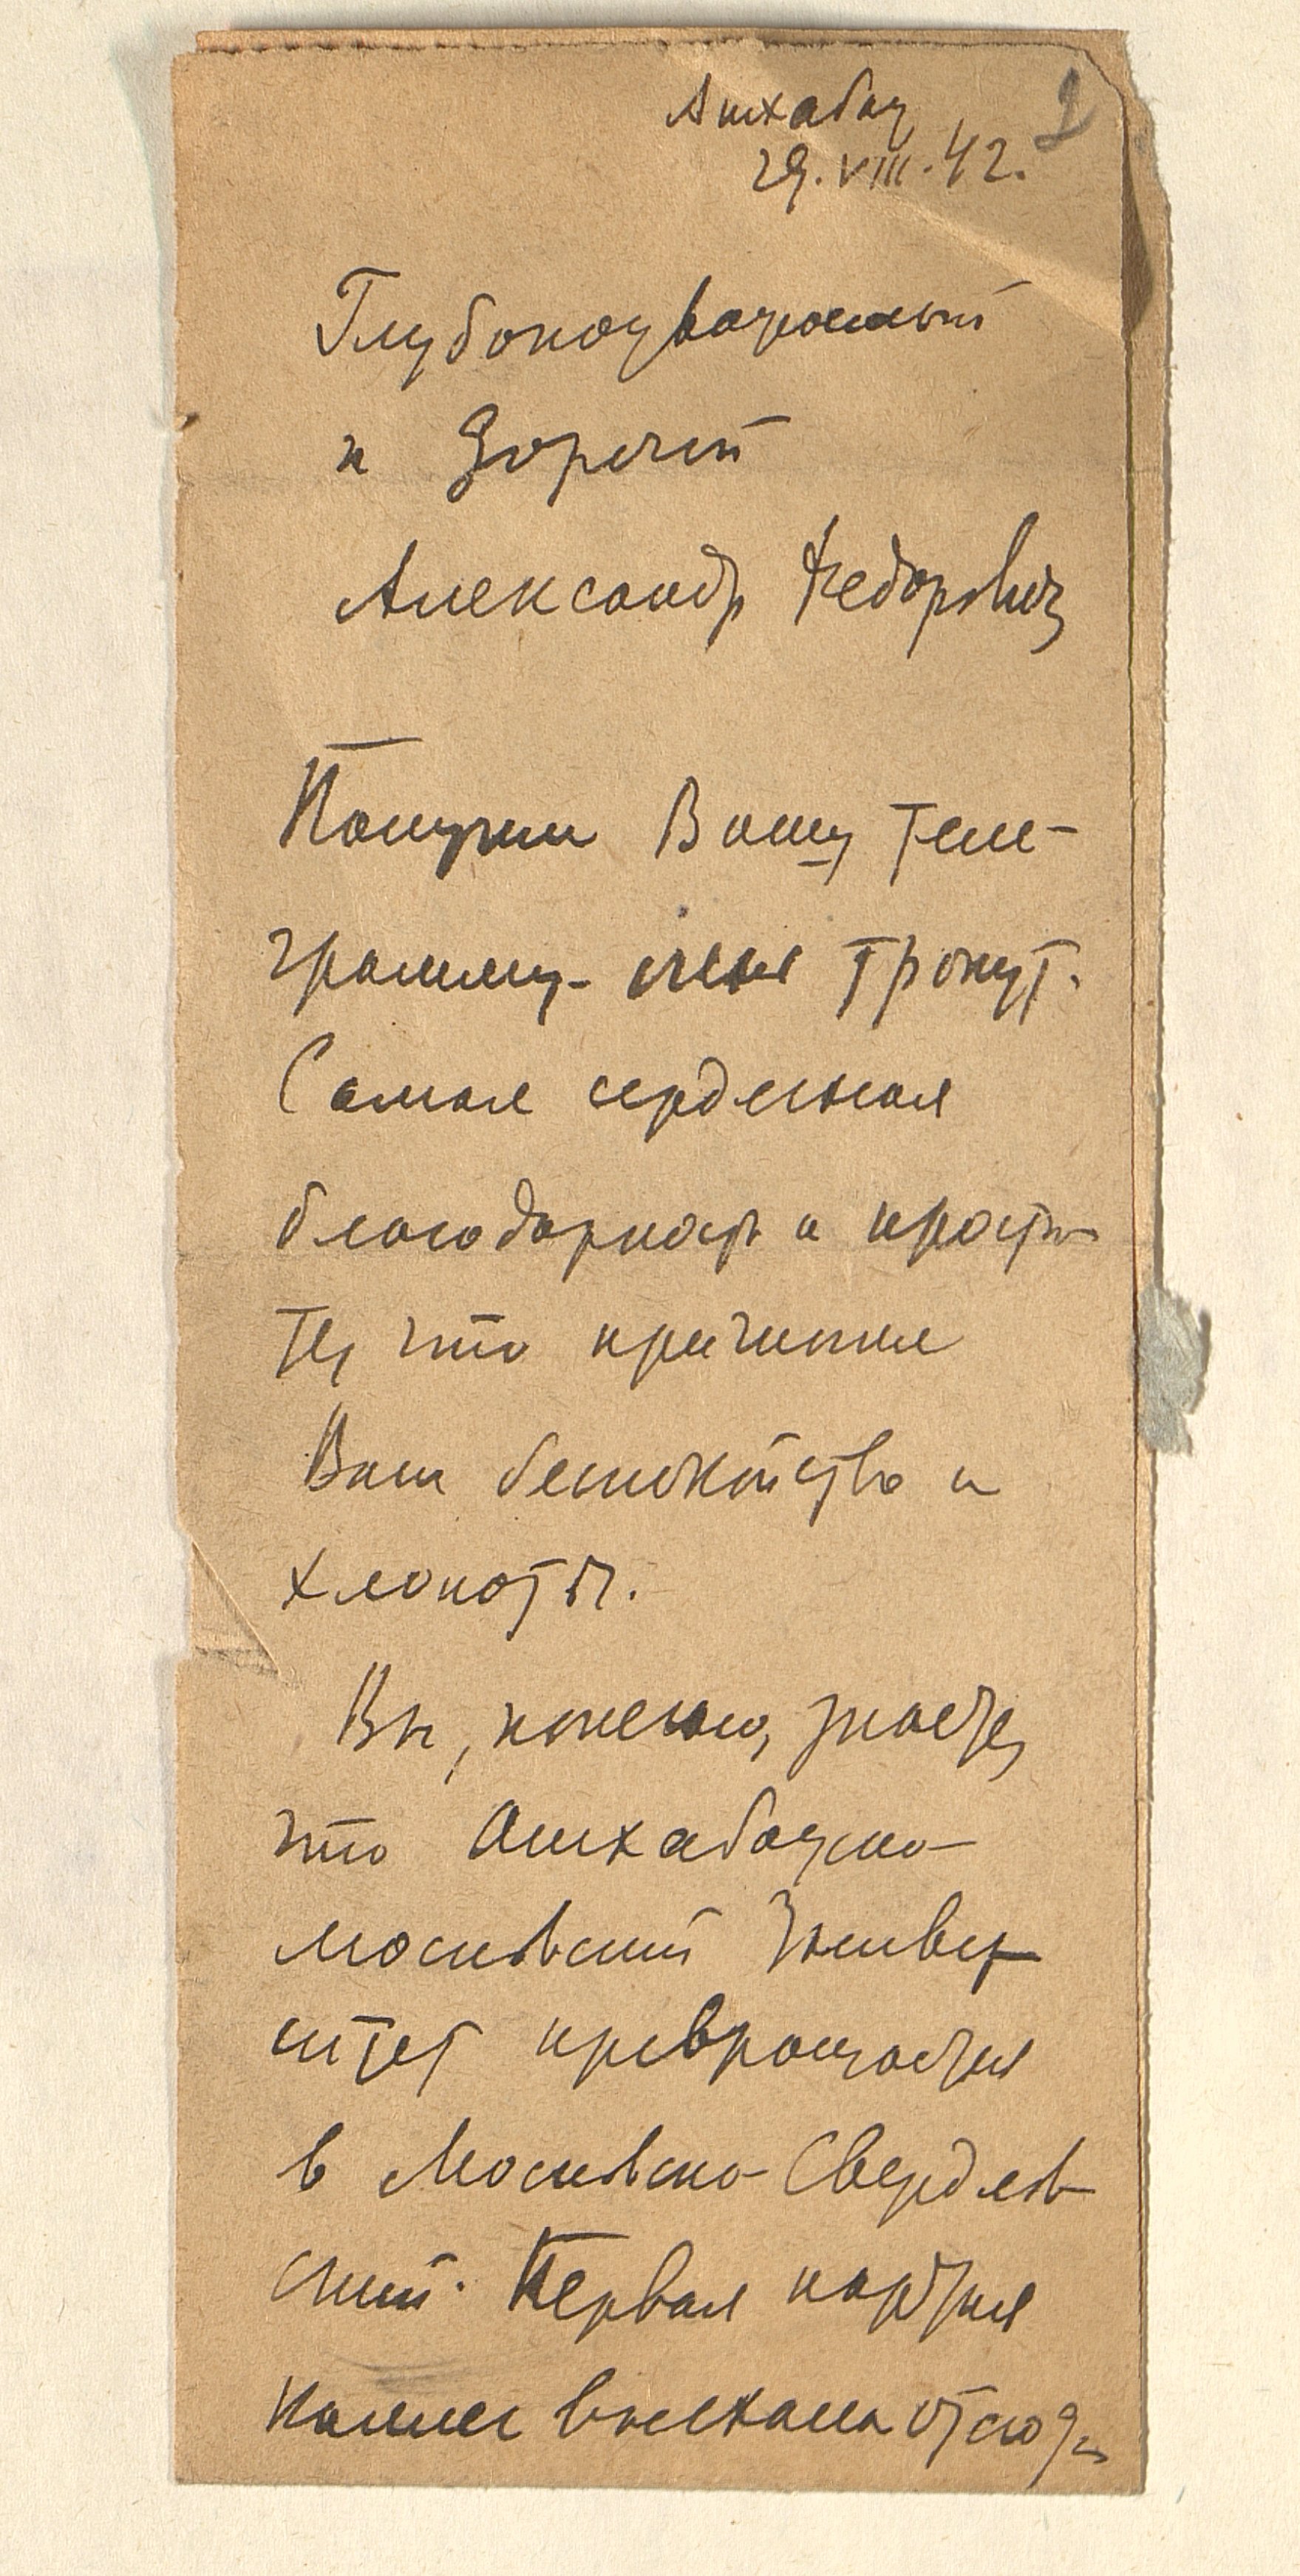 Ашхабад
2
29.VIII.42.
Глубокоуважаемый
и дорогой
Александр Федорович
Получил Вашу теле-
грамму - очень тронут.
Самая сердечная
благодарность и прости-
те, что причинил
Вам беспокойство и
хлопоты.
Вы, конечно, знаете,
что Ашхабадско-
Московский Универ-
ситет превращается
в Московско-Свердлов-
ский. Первая партия
коллег выехала отсюда